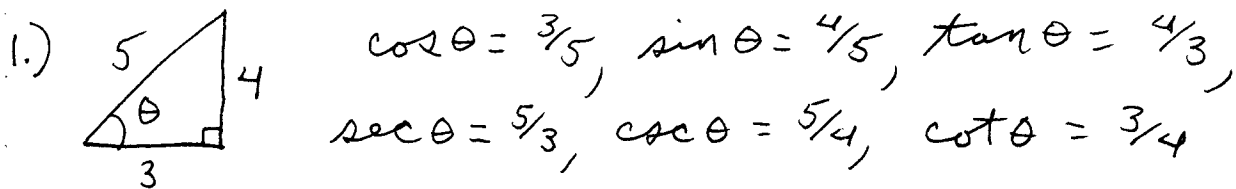 1.) 5 θ 4 3 cos θ = 3/5, sin θ = 4/5, tan θ = 4/3,
sec θ = 5/3, csc θ = 5/4, cot θ = 3/4